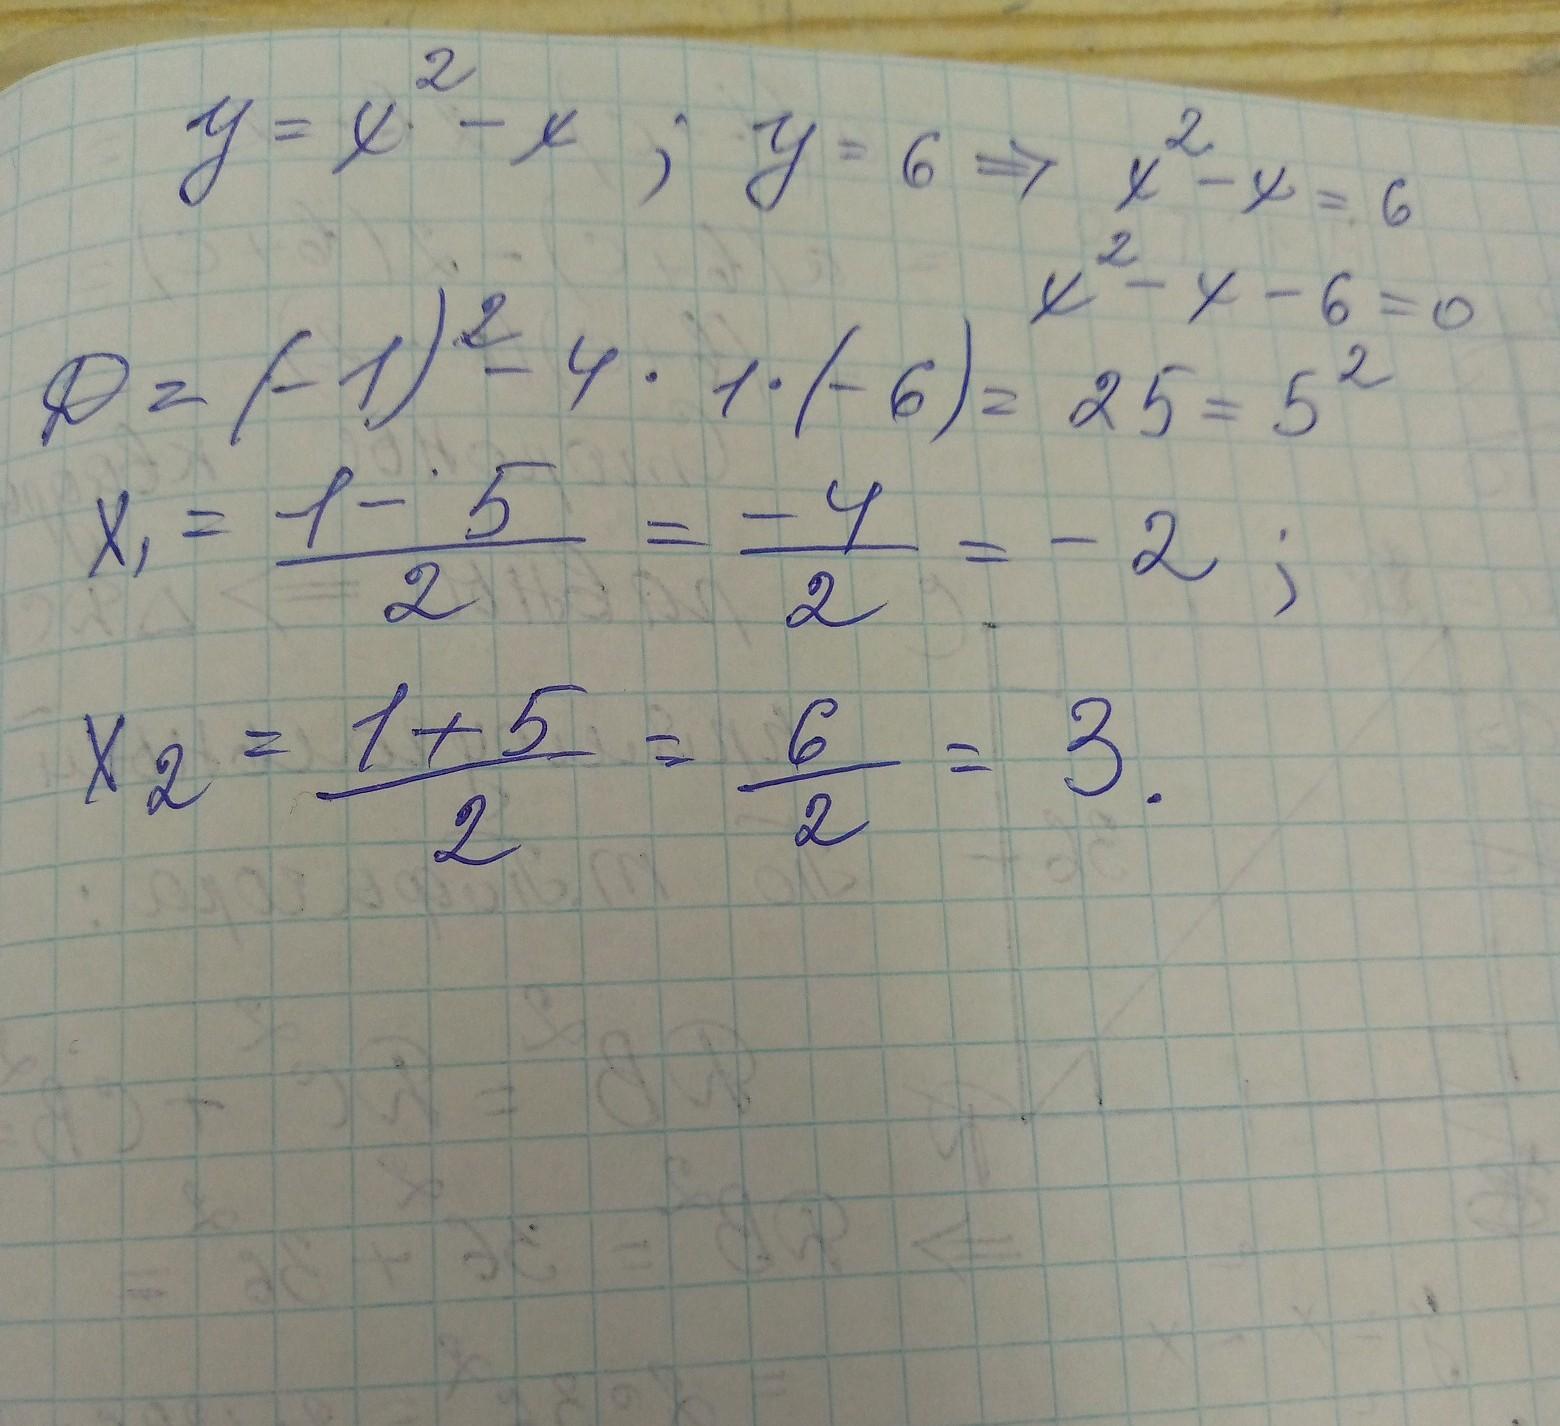 y = x² - x ; y = 6 ⇒ x² - x = 6
x² - x - 6 = 0
D = (-1)² - 4 · 1 · (-6) = 25 = 5²
x₁ = (1 - 5)/2 = -4/2 = -2 ;
x₂ = (1 + 5)/2 = 6/2 = 3.